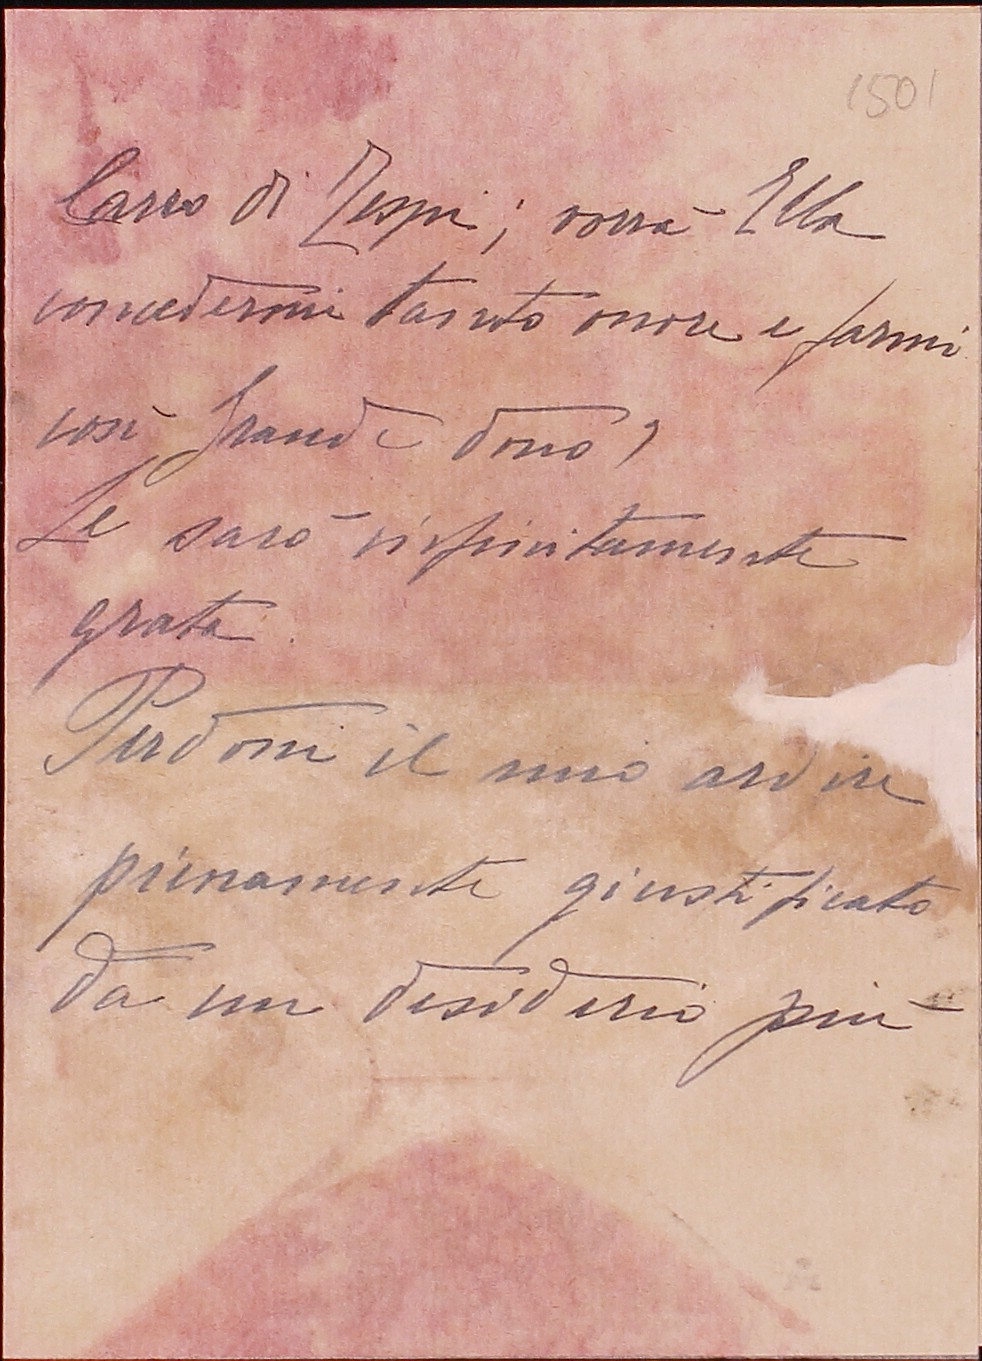 1501
Carro di Tespi; vorrà Ella
concedermi tanto onore e farmi
così grande dono?
Le sarò infinitamente
grata.
Perdoni il mio ardire
pienamente giustificato
da un desiderio più